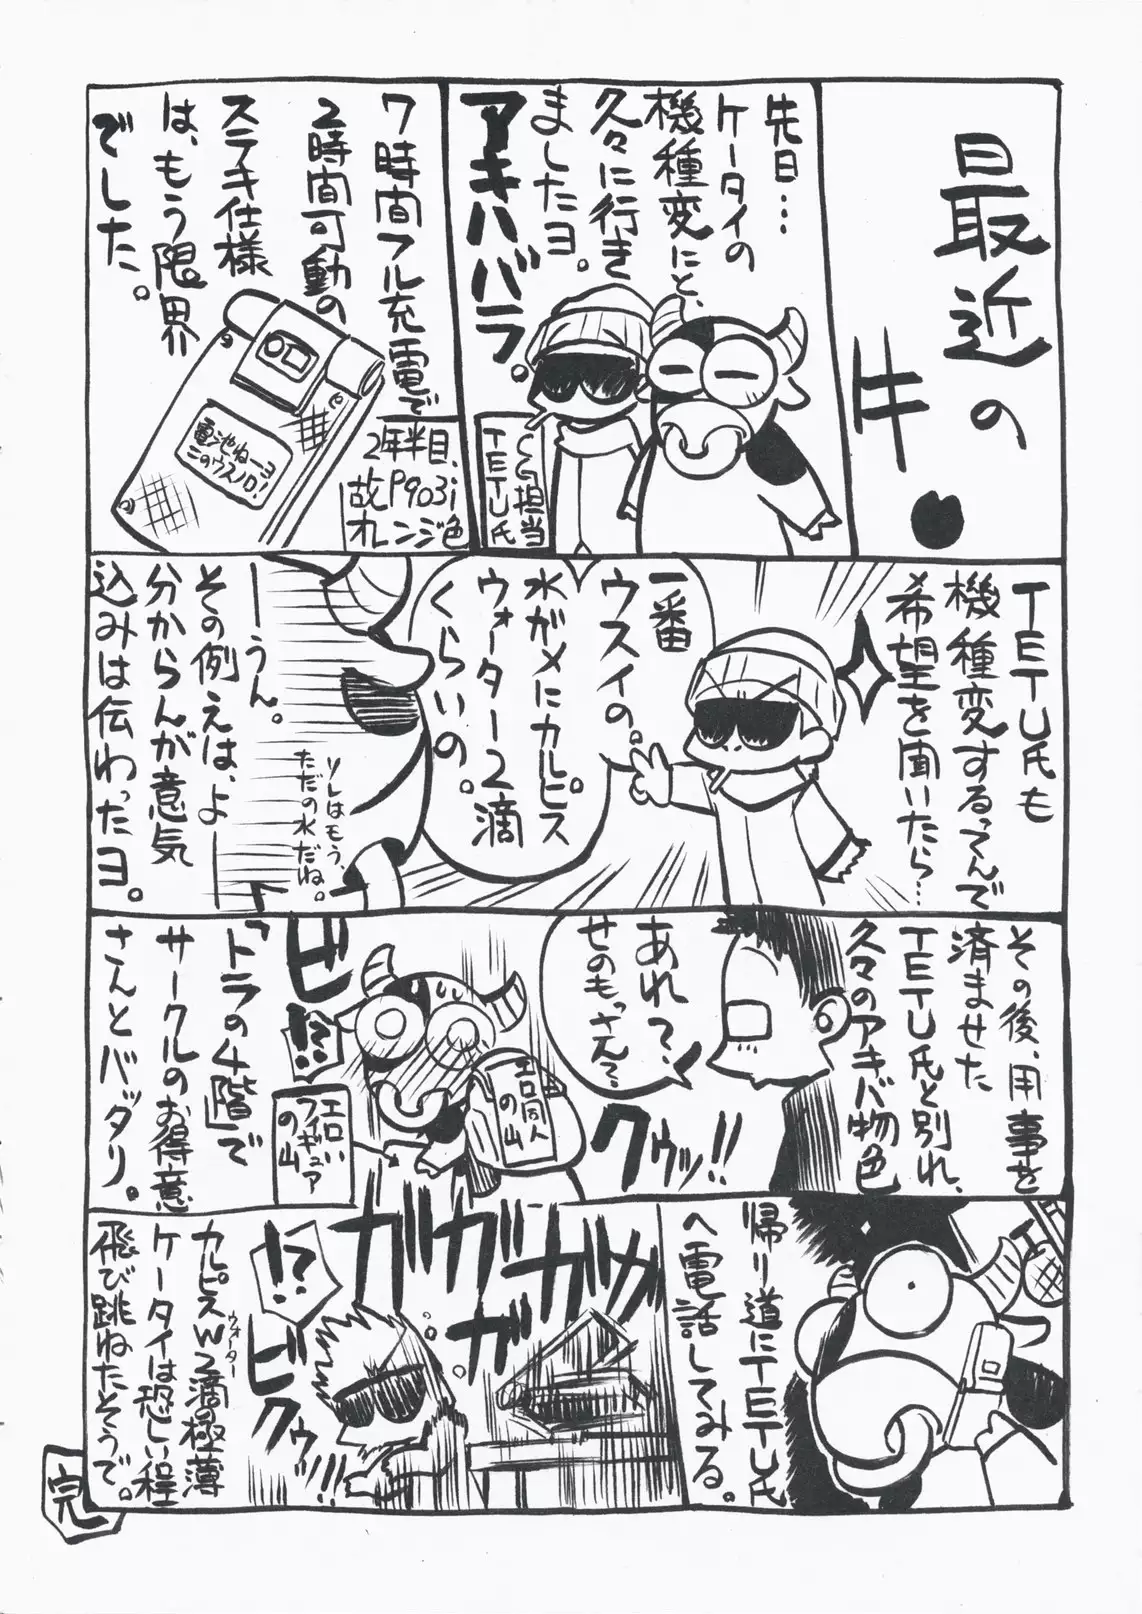 最近の
牛。
先日…
ケータイの
機種変にと、
久々に行き
ましたヨ。
アキハバラ。
CG担当
TETU氏
7時間フル充電で
2時間可動の
ステキ仕様
は、もう限界
でした。
電池ねーヨ
このウスノロ!
2年半目、
故P903i
オレンジ色
TETU氏も
機種変するってんで
希望を聞いたら…
一番
ウスイの。
水ガメにカルピス
ウォーター2滴
くらいの。
ソレはもう、
ただの水だね。
ーうん。
その例えは、よー
分からんが意気
込みは伝わったヨ。
その後、用事を
済ませた
TETU氏と別れ、
久々のアキバ物色
あれ?
せのもっさん?
クウッ!!
ビ
!?
エロ同人
の山
エロい
フィギュア
の山
「トラの4階」で
サークルのお得意
さんとバッタリ。
帰り道にTETU氏
へ電話してみる。
ガガガガガガ
!?
ビクウッ!!
カルピスW2滴極薄
ウォーター
ケータイは恐しい程
飛び跳ねたそうで。
完